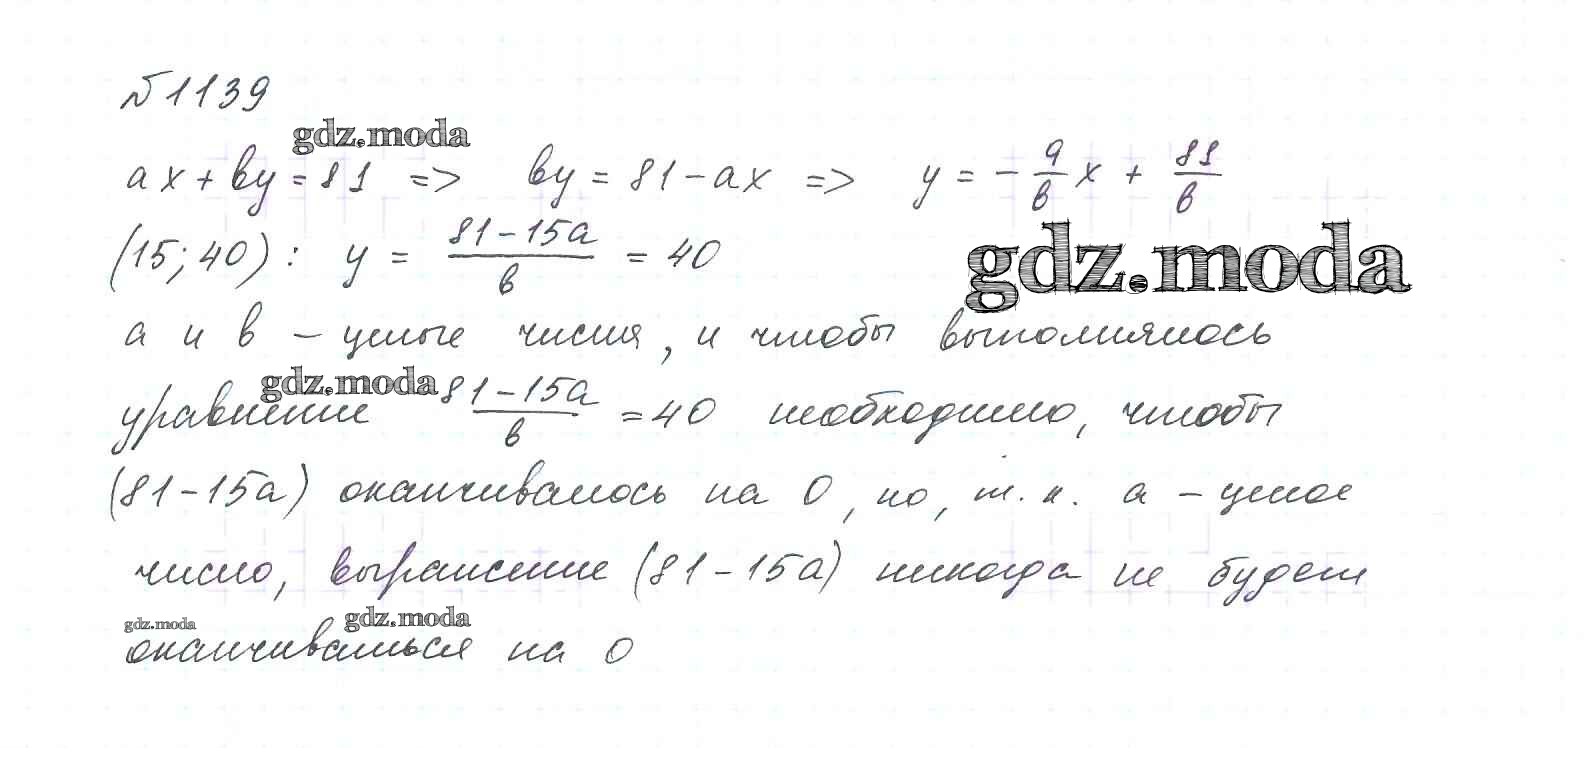 №1139
gdz.moda
ax + by = 81 => by = 81 - ax => y = - a/b x + 81/b
(15; 40): y = (81 - 15a)/b = 40
gdz.moda
a и b – целые числа, и чтобы выполнялось
gdz.moda
уравнение (81 - 15a)/b = 40 необходимо, чтобы
(81 - 15a) оканчивалось на 0, но, т. к. a – целое
число, выражение (81 - 15a) никогда не будет
gdz.moda gdz.moda
оканчиваться на 0